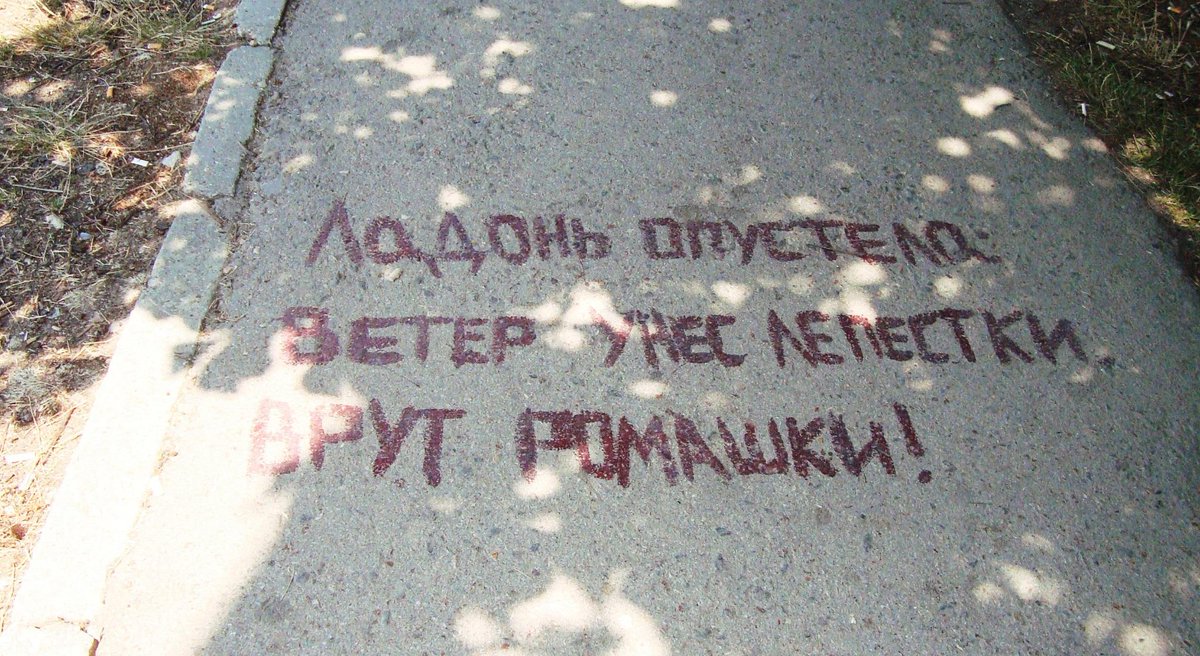 Ладонь опустела.
Ветер унес лепестки.
Врут ромашки!